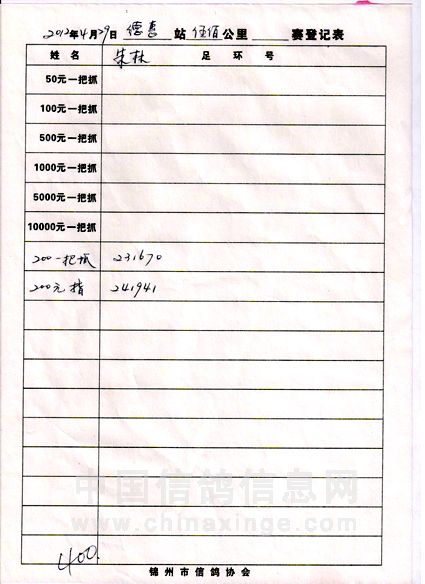 2012年4月29日 德喜 站 伍佰 公里 赛登记表
姓名 朱林 足环号
50元一把抓
100元一把抓
500元一把抓
1000元一把抓
5000元一把抓
10000元一把抓
200一把抓 231670
200元指 241941
中国信鸽信息网
www.chinaxinge.com
400
锦州市信鸽协会